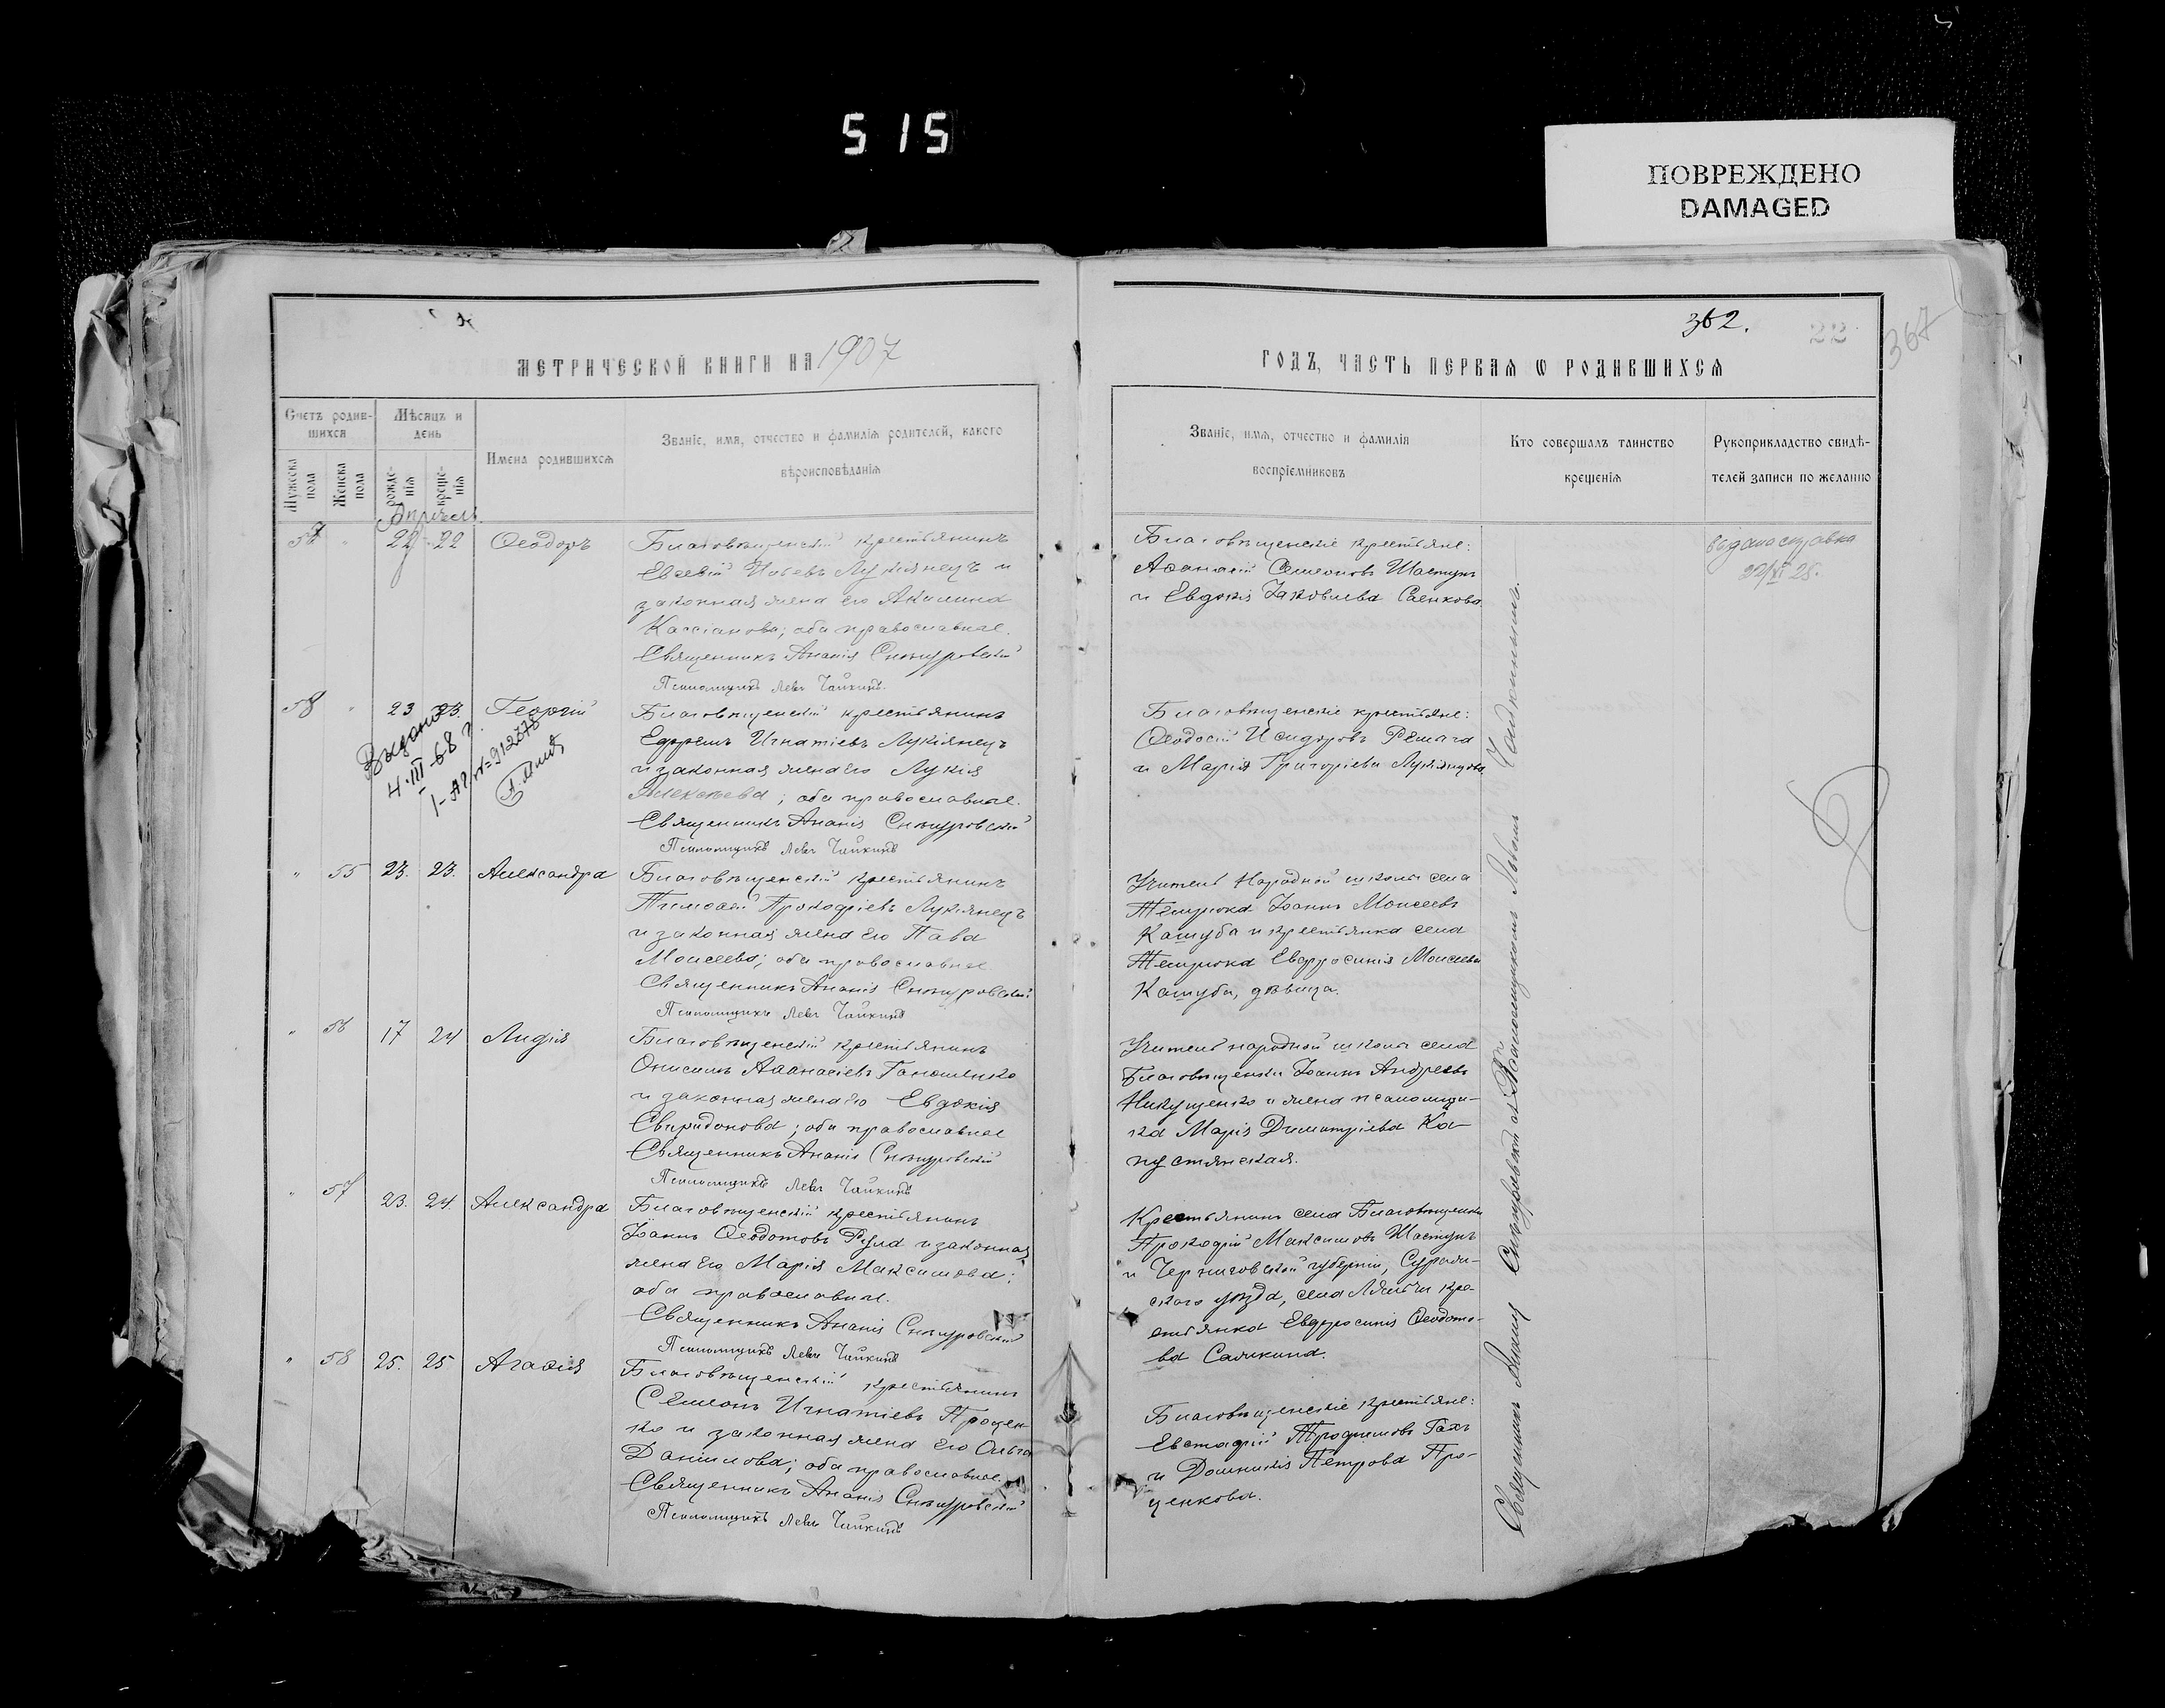 515
ПОВРЕЖДЕНО
DAMAGED
МЕТРИЧЕСКОЙ КНИГИ НА 1907
Счетъ родив-
шихся
Мѣсяцъ и
день
Имена родившихся
Званіе, имя, отчество и фамилія родителей, какого
вѣроисповѣданія
Мужеска
пола
Женска
пола
рожде-
нія
креще-
нія
57 " 22 22 Ѳеодоръ
Благовѣщенскій крестьянинъ
Евсевій Лукіянецъ и
законная жена его Акилина
Кассіанова; оба православные.
Священникъ Ананія Снѣгуровскій
Псаломщикъ Левъ Чайкинъ.
58 " 23 23. Георгій
Выдано
4-III-68 г.
Благовѣщенскій крестьянинъ
Ефремъ Игнатіевъ Лукіянецъ
и законная жена его Лукія
Алексѣева; оба православные.
Священникъ Ананія Снѣгуровскій
Псаломщикъ Левъ Чайкинъ
" 55 23. 23. Александра
Благовѣщенскій крестьянинъ
Тимоѳей Прокофіевъ Лукіянецъ
и законная жена его Пава
Моисеева; оба православные
Священникъ Ананія Снѣгуровскій
Псаломщикъ Левъ Чайкинъ
" 56 17 24 Лидія
Благовѣщенскій крестьянинъ
Онисимъ Аѳанасіевъ
и законная жена его Евдокія
Свиридонова; оба православные
Священникъ Ананія Снѣгуровскій
Псаломщикъ Левъ Чайкинъ
" 57 23. 24. Александра
Благовѣщенскій крестьянинъ
Іоаннъ Ѳеодотовъ и законная
жена его Марія Максимова;
оба православные.
Священникъ Ананія Снѣгуровскій
Псаломщикъ Левъ Чайкинъ
" 58 25. 25 Агаѳія
Благовѣщенскій крестьянинъ
Семеонъ Игнатіевъ Процен-
ко и законная жена его Ольга
Даніилова; оба православные.
Священникъ Ананія Снѣгуровскій
Псаломщикъ Левъ Чайкинъ
362.
22
367
ГОДЪ, ЧАСТЬ ПЕРВАЯ Ѡ РОДИВШИХСЯ
Званіе, имя, отчество и фамилія
воспріемниковъ
Кто совершалъ таинство
крещенія
Рукоприкладство свидѣ-
телей записи по желанію
Благовѣщенскіе крестьяне:
Аѳанасій Семеоновъ Шастунъ
и Евдокія Іаковлева Саенкова
выдана справка
22/XI 28.
Благовѣщенскіе крестьяне:
Ѳеодосій Исидоровъ Ремага
и Марія Григоріева Лукіянцова
Учитель Народной школы села
Темрюка Іоаннъ Моисеевъ
Кашуба и крестьянка села
Темрюка Евфросинія Моисеева
Кашуба, дѣвица.
Учитель народной школы села
Благовѣщенки Іоаннъ Андреевъ
Никущенко и жена псаломщи-
ка Марія Димитріева Ка-
пустянская.
Крестьянинъ села Благовѣщенки
Прокофій Максимовъ Шастунъ
и Черниговской губерніи, Сураж-
скаго уѣзда, села Ляличи кре-
стьянка Евфросинія Ѳеодото-
ва Саликина.
Благовѣщенскіе крестьяне:
Евстафій Трофимовъ Гахъ
и Домникія Петрова Про-
ценкова.
Священникъ Ананія Снѣгуровскій съ Псаломщикомъ Львомъ Чайкинымъ.